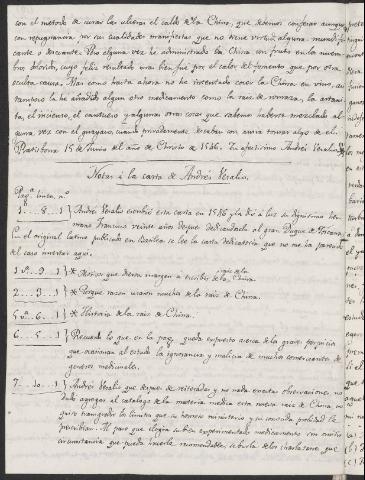 con el metodo de curar las ulceras el caldo de la China, que devemos confesar aunque
con repugnancia, no ver cualidades manifiestas que no tiene virtud alguna mundifi-
cante y desecante. Por alguna vez he administrado la China con fruto en la
oculta causa. Mas como hasta ahora no he intentado cocer la China en vino, ni
tampoco le he añadido algun otro medicamento como la raiz de
el incienso, el cantueso y algunas otras cosas que sabemos haberse mezclado al
guna vez con el guayaco, cuando privadamente deseaban con ansia tomar algo de el.
Ratisbona 15 de Junio del año de Christo de 1546. Tu afectisimo Andrés Vesalio.
Notas á la carta de Andrés Vesalio.
Pagª. linea. nº.
1ª...8...1 } Andrés Vesalio escribió esta carta en 1546 y la dió á luz su dignisimo her-
mano Francisco veinte años despues dedicandola al gran Duque de Toscana
En el original latino publicado en Basilea se lee la carta dedicatoria que no me ha parecido
del caso insertar aqui.
1ª..9..1 } * Motivos que dieron margen á escribir de la raiz de la China.
2...3...1 } * Porque razon usaron muchos de la raiz de China.
5ª..6..1 } * Historia de la raiz de China.
6...5...1 } Recuerdo lo que en la pag. queda expuesto acerca de los graves perjuicios
que ocasionan al estado la ignorancia y malicia de muchos comerciantes de
generos medicinales.
7...10...1 } Andrés Vesalio que despues de reiteradas y no nada exactas observaciones, no
dudó agregar al catalogo de la materia medica esta nueva raiz de China, no
quiso transgredir los limites que su honroso ministerio y su conocida probidad le
prescribian. Al paso que elogia su bien experimentado medicamento sin omitir
circunstancia que pueda hacerle recomendable, se burla de los charlatanes, que